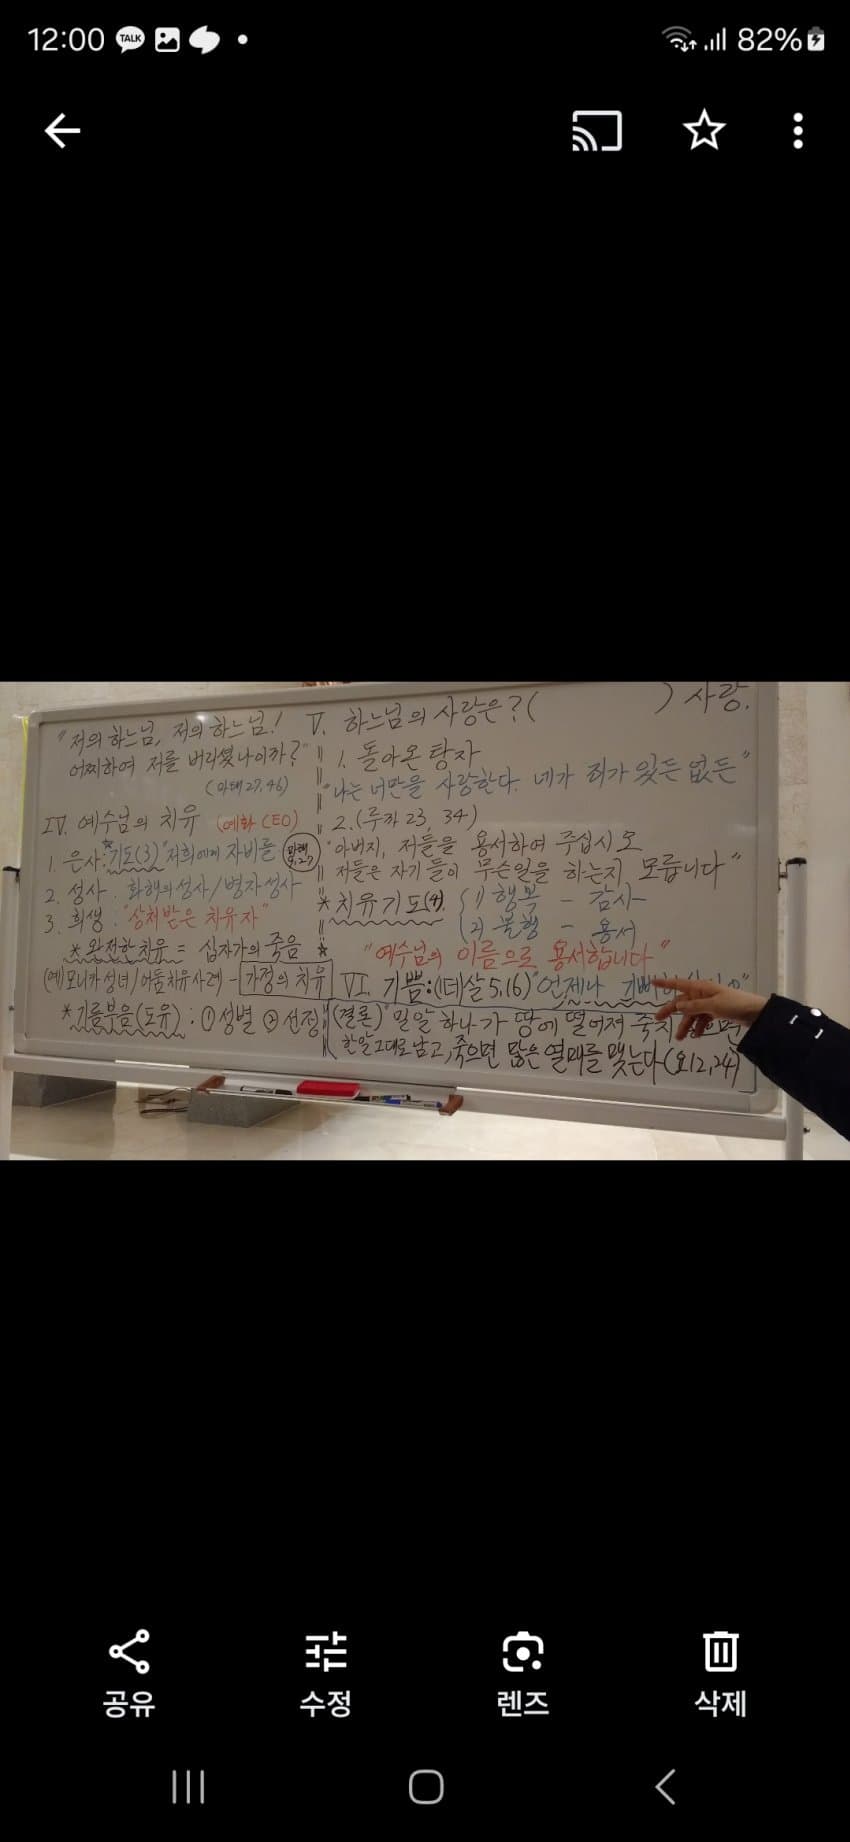 12:00 TALK 82%
"저의 하느님, 저의 하느님!
어찌하여 저를 버리셨나이까?"
(마태27,46)
IV. 예수님의 치유 (예화 CEO)
1. 은사: *기도(3) "저희에게 자비를 (마태 9,27)
2. 성사: 화해의 성사/병자성사
3. 희생: "상처받은 치유자"
*완전한 치유 = 십자가의 죽음 *
(예) 모니카 성녀/어둠치유사례 - 가정의 치유
*기름부음(도유): ① 성별 ② 선정
V. 하느님의 사랑은? ( ) 사랑.
1. 돌아온 탕자
"나는 너만을 사랑한다. 네가 죄가 있든 없든"
2. (루카 23, 34)
"아버지, 저들을 용서하여 주십시오
저들은 자기들이 무슨일을 하는지 모릅니다"
*치유기도(4). 1) 행복 - 감사
2) 불행 - 용서
"예수님의 이름으로 용서합니다"
VI. 기쁨: (1테살 5,16) "언제나
(결론) "밀알 하나가 땅에 떨어져 죽지
한알 그대로 남고, 죽으면 많은 열매를 맺는다 (요12,24)
공유 수정 렌즈 삭제